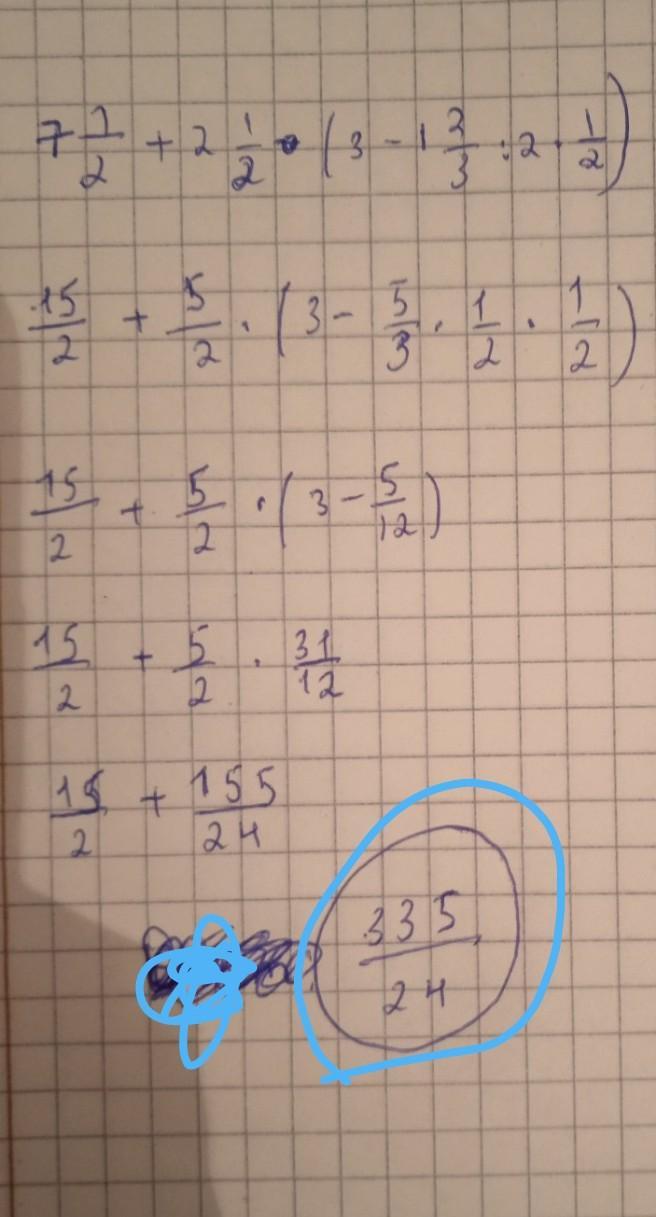 7 1/2 + 2 1/2 • (3 - 1 2/3 : 2 · 1/2)
15/2 + 5/2 · (3 - 5/3 · 1/2 · 1/2)
15/2 + 5/2 · (3 - 5/12)
15/2 + 5/2 · 31/12
15/2 + 155/24
335/24